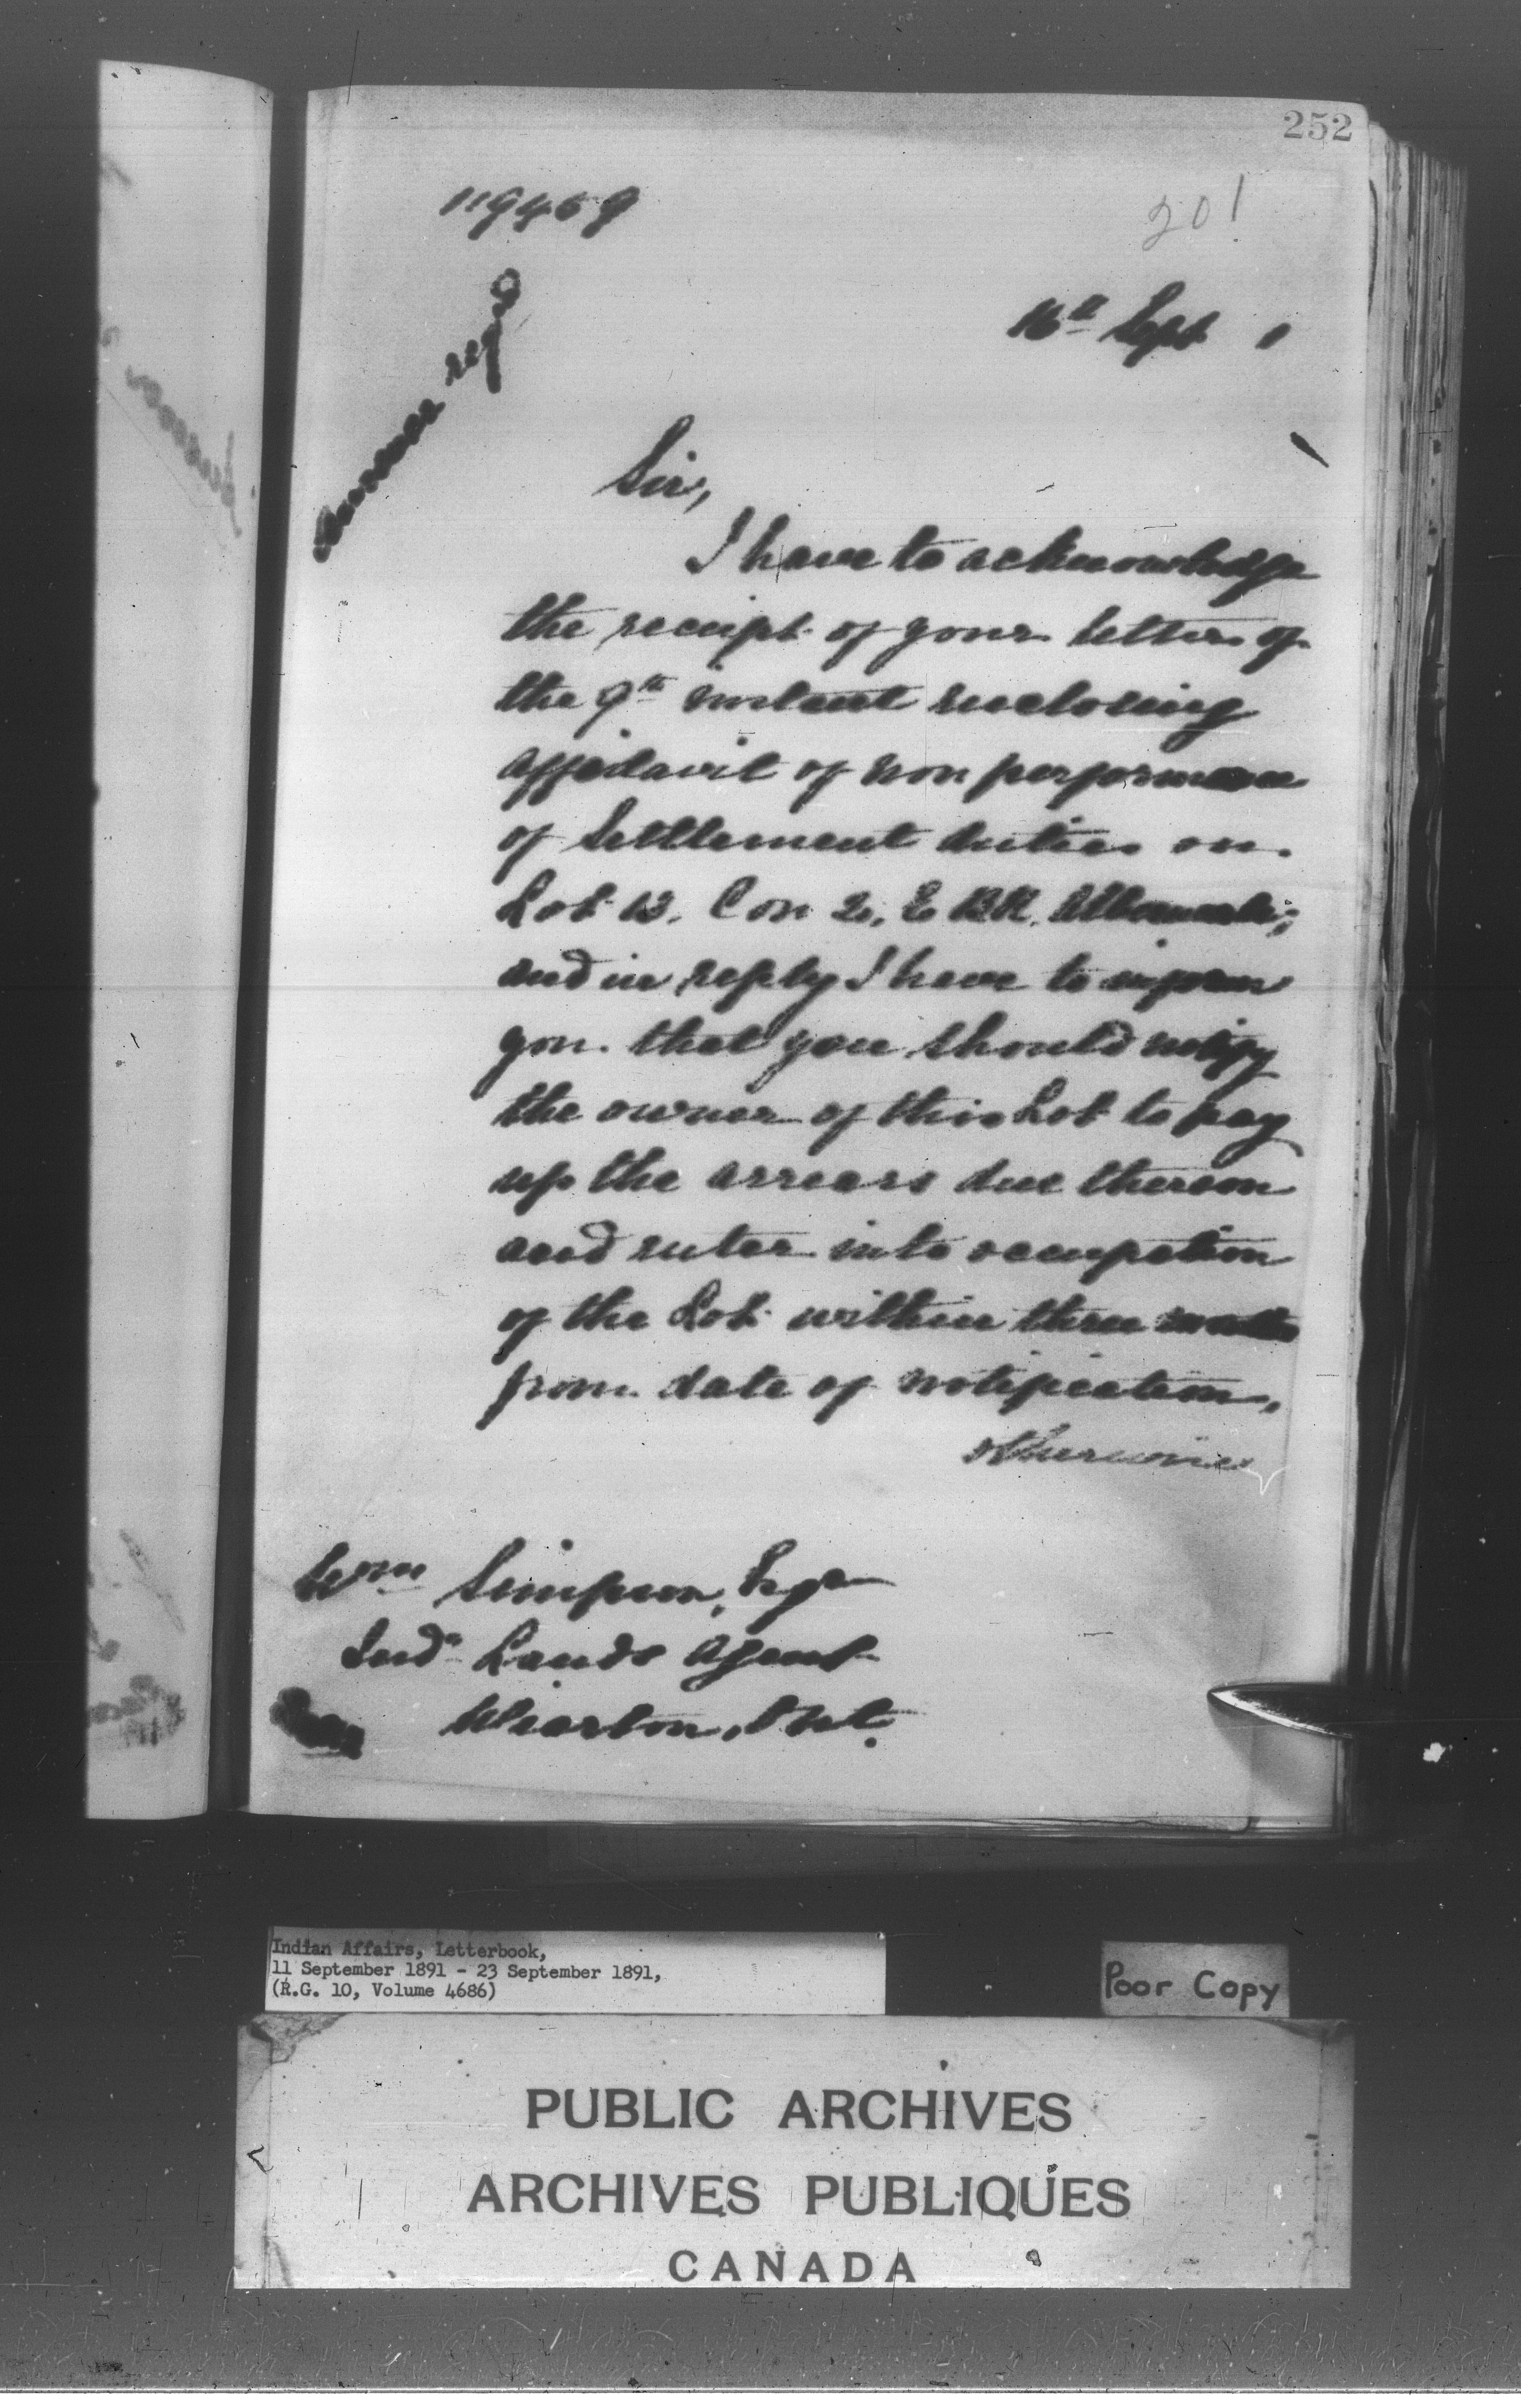 252
119469
201
16th Sept 1
Answer reqd
Sir,
I have to acknowledge
the receipt of your letter of
the 9th instant enclosing
affidavit of non performance
of Settlement duties on
Lot 13. Con 2, E BR. Albemarle;
and in reply I have to inform
you that you should notify
the owner of this Lot to pay
up the arrears due thereon
and enter into occupation
of the Lot within three months
from date of notification,
otherwise
Wm Simpson, Esqr
Indn Lands Agent
Wiarton, Ont.
Indian Affairs, Letterbook,
11 September 1891 - 23 September 1891,
(R.G. 10, Volume 4686)
Poor Copy
PUBLIC ARCHIVES
ARCHIVES PUBLIQUES
CANADA